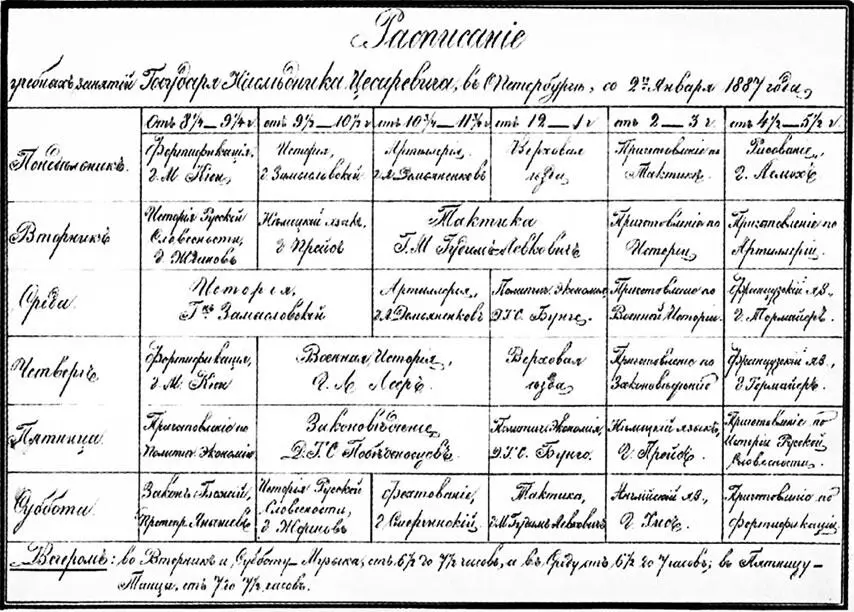 Расписаніе
учебныхъ занятій Государя Наслѣдника Цесаревича, въ С Петербургѣ, со 2го Января 1887 года,
отъ 8½ — 9¼ г отъ 9½ — 10½ г отъ 10¾ — 11¾ г отъ 12 — 1 г отъ 2 — 3 г. отъ 4½ — 5½ г
Понедѣльникъ.
Фортификація,
Г. М Кюи,
Исторія,
Г Замысловскій
Артиллерія,
Г. Л. Демьяненковъ
Верховая
ѣзда,
Приготовленіе по
Тактикѣ.
Рисованіе,
Г. Лемохъ
Вторникъ
Исторія Русской
Словесности,
Г Ждановъ
Нѣмецкій языкъ,
Г Прейсъ
Тактика
Г. М Гудимъ-Левковичъ
Приготовленіе по
Исторіи
Приготовленіе по
Артиллеріи.
Среда
Исторія,
Гнъ Замысловскій
Артиллерія,
Г. Л. Демьяненковъ
Политич. Экономія,
Д. Т. С. Бунге.
Приготовленіе по
Военной Исторіи.
Французскій яз.,
Г. Гормайеръ.
Четвергъ
Фортификація,
Г. М. Кюи
Военная Исторія,
Г. Л Лееръ.
Верховая
ѣзда
Приготовленіе по
Законовѣдѣнію
Французскій яз.,
Г Гормайеръ.
Пятница
Приготовленіе по
Политич. Экономіи.
Законовѣдѣніе,
Д. Т. С Побѣдоносцевъ.
Политич Экономія,
Д. Т. С. Бунге.
Нѣмецкій языкъ,
Г. Прейсъ.
Приготовленіе по
Исторіи Русской
Словесности.
Суббота.
Законъ Божій,
Протопр. Янышевъ
Исторія Русской
Словесности,
Г Ждановъ
Фехтованіе,
Тактика,
Г. М Гудимъ Левковичъ
Англійскій яз.,
Г. Хисъ.
Приготовленіе по
Фортификаціи
Вечеромъ: во Вторникъ и Субботу — Музыка, отъ 6½ до 7½ часовъ, а въ Среду отъ 6½ до 7 часовъ; въ Пятницу —
Танцы, отъ 7 до 7½ часовъ.